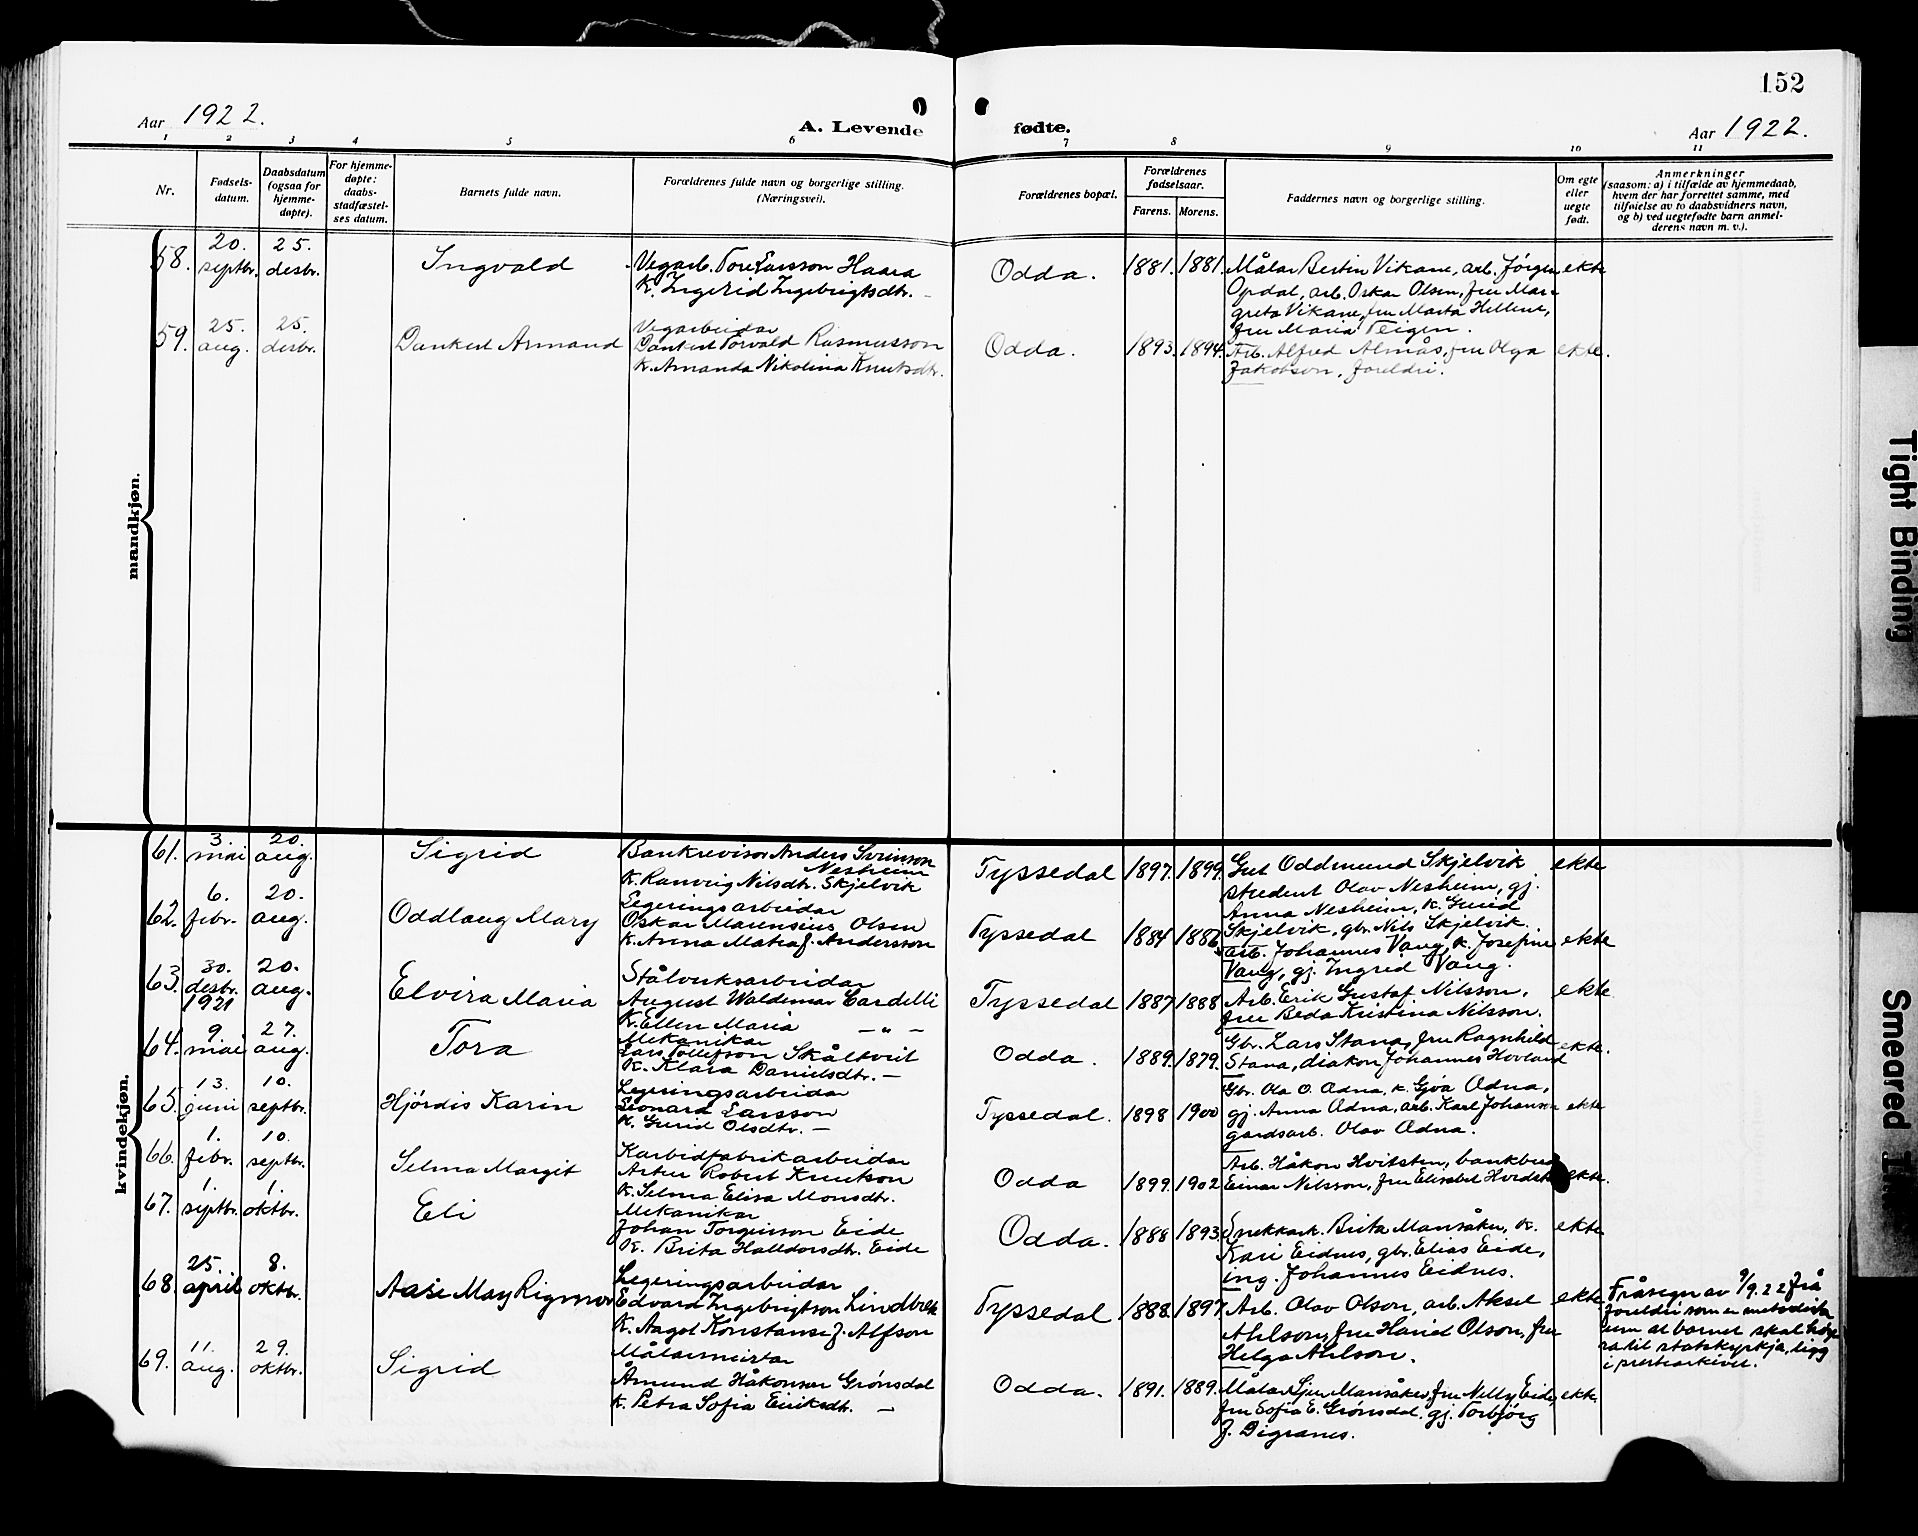 152
Aar 1922.
A. Levende fødte.
Aar 1922.
1 2 3 4 5 6 7 8 9 10 11
Nr.
Fødsels-
datum.
Daabsdatum
(ogsaa for
hjemme-
døpte).
For hjemme-
døpte:
daabs-
stadfæstel-
ses datum.
Barnets fulde navn.
Forældrenes fulde navn og borgerlige stilling.
(Næringsvei).
Forældrenes bopæl.
Forældrenes
fødselsaar.
Farens. Morens.
Faddernes navn og borgerlige stilling.
Om egte
eller
uegte
født.
Anmerkninger
(saasom: a) i tilfælde av hjemmedaab,
hvem der har forrettet samme, med
tilføielse av to daabsvidners navn,
og b) ved uegtefødte barn anmel-
derens navn m. v.).
mandkjøn.
58. 20. septbr. 25. desbr. Ingvald
Vegarb. Tore Larsson Haara
K. Ingerid Ingebrigtsdtr. -
Odda. 1881. 1881.
Målar Bertin Vikane, arb. Jørgen
Opdal, arb. Oskar Olsen, fru Mar-
greta Vikane, fru Marta Hellene,
fru Maria Teigen.
ekte
59. 25. aug. 25. desbr. Dankert Armand
Vegarbeidar
Dankert Torvald Rasmusson
K. Amanda Nikolina Knutsdtr.
Odda. 1893. 1894.
Arb. Alfred Almås, fru Olga
Jakobson, foreldri.
ekte.
kvindekjøn.
61. 3. mai 20. aug. Sigrid
Bankrevisor Anders Sveinson
Nesheim
K. Ranveig Nilsdtr. Skjelvik
Tyssedal 1897. 1899.
Gut Oddmund Skjelvik
student Olav Nesheim, gj.
Anna Nesheim, k. Gurid
Skjelvik, gbr. Nils Skjelvik.
ekte
62. 6. febr. 20. aug. Oddlaug Mary
Legeringsarbeidar
Oskar Marensius Olsen
K. Anna Matea f. Andersson
Tyssedal 1884 1886
Arb. Johannes Vang, k. Josefine
Vang, gj. Ingrid Vang.
ekte
63. 30. desbr. 1921 20. aug. Elvira Maria
Stålverksarbeidar
August Waldemar Cardelli
K. Ellen Maria — " —
Tyssedal 1887 1888
Arb. Erik Gustaf Nilsson,
fru Beda Kristina Nilsson.
ekte
64. 9 mai 27. aug. Tora
Mekanikar
Lars Tollefson Skåltveit
K. Klara Danielsdtr. —
Odda. 1889. 1879.
Gbr. Lars Stana, fru Ragnhild
Stana, diakon Johannes Hovland
ekte.
65. 13. juni 10. septbr. Hjørdis Karin
Legeringsarbeidar
Leonard Larsson
K. Gurid Olsdtr. —
Tyssedal. 1898 1900
Gbr. Ola O. Ædna, k. Gjøa Ædna,
gj. Anna Ædna, arb. Karl Johansen
gardsarb. Olav Ædna.
ekte
66. 1. febr. 10. septbr. Selma Margit
Karbidfabrikarbeidar
Artur Robert Knutson
K. Selma Elisa Monsdtr.
Odda 1899. 1902
Arb. Håkon Hvitsten,
Einar Nilsson, fru Elisabet
ekte.
67. 1. septbr. 1. oktbr. Eli
Mekanikar
Johan Torgeirson Eide
K. Brita Halldorsdtr. Eide
Odda. 1888 1893
Brita Mansåker, k.
Kari Eidnes, gbr. Elias Eide,
ing. Johannes Eidnes.
ekte
68. 25. april 8. oktbr. Aase May Rigmor
Legeringsarbeidar
Edvard Ingebrigtson Lindbekk
K. Aagot Konstanse f. Alfson
Tyssedal 1888. 1897.
Arb. Olav Olson, arb. Aksel
Ahlson, fru Havid Olson, fru
Helga Ahlson.
ekte
Fråsegn av 9/9.22 frå
foreldri som er metodistar
um at barnet skal høy-
ra til statskyrkja, ligg
i prestearkivet.
69. 11. aug. 29. oktbr. Sigrid
Målarmeistar
Åmund Håkonson Grønsdal
K. Petra Sofia Eiriksdtr. —
Odda. 1891. 1889.
Målar Sjur Mansåker, fru Nelly Eide,
fru Sofia E. Grønsdal. gj. Torbjørg
J. Digranes.
ekte.
Tight Binding
Smeared